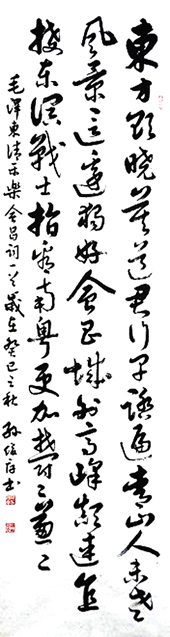 東方欲曉莫道君行早踏遍青山人未老
風景這邊獨好會昌城外高峰顛連直
接东溟戰士指看南粤更加郁〻葱〻
毛澤東清平樂會昌詞一首歲在癸巳之秋 孫 书